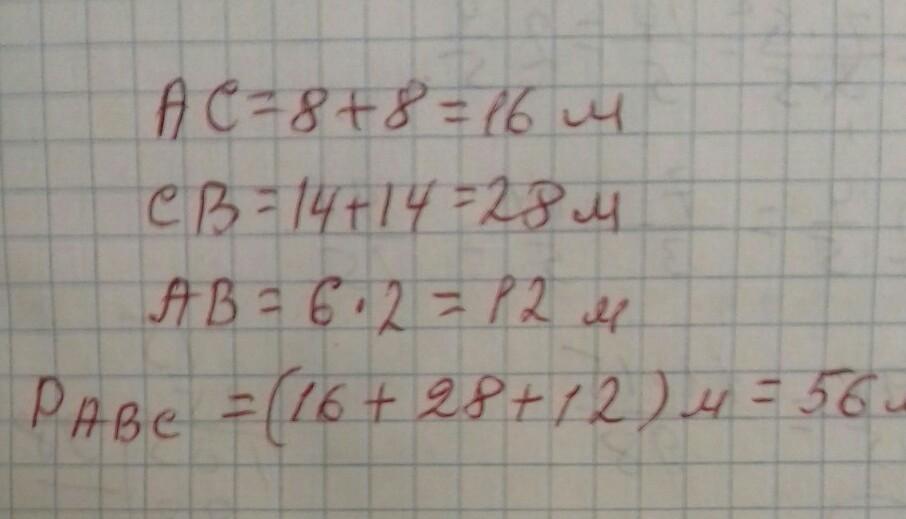 AC=8+8=16 м
CB=14+14=28м
AB = 6·2 = 12 м
PABC =(16+28+12) м = 56 м